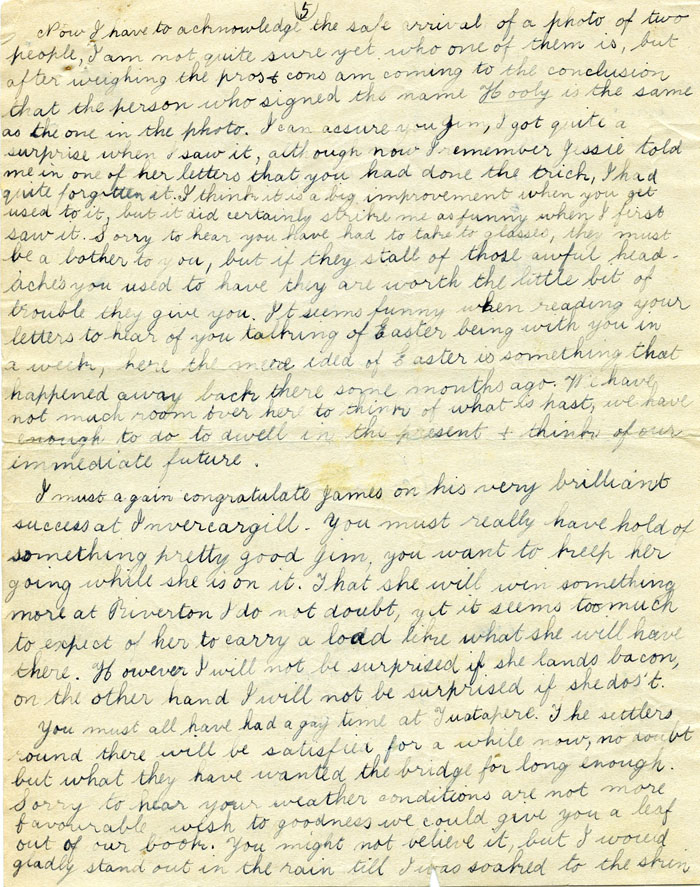 5
Now I have to acknowledge the safe arrival of a photo of two
people, I am not quite sure yet who one of them is, but
after weighing the pros & cons am coming to the conclusion
that the person who signed the name Hooly is the same
as the one in the photo. I can assure you Jim, I got quite a
surprise when I saw it, although now I remember Jessie told
me in one of her letters that you had done the trick, I had
quite forgotten it. I think it is a big improvement when you get
used to it, but it did certainly strike me as funny when I first
saw it. Sorry to hear you have had to take to glasses, they must
be a bother to you, but if they stall of those awful head-
aches you used to have they are worth the little bit of
trouble they give you. It seems funny when reading your
letters to hear of you talking of Easter being with you in
a week, here the mere idea of Easter is something that
happened away back there some months ago. We have
not much room over here to think of what is past, we have
enough to do to dwell in the present & think of our
immediate future.
I must again congratulate James on his very brilliant
success at Invercargill. You must really have hold of
something pretty good Jim, you want to keep her
going while she is on it. That she will win something
more at Riverton I do not doubt, yet it seems too much
to expect of her to carry a load like what she will have
there. However I will not be surprised if she lands bacon,
on the other hand I will not be surprised if she dos't.
You must all have had a gay time at Tuatapere. The settlers
round there will be satisfied for a while now, no doubt
but what they have wanted the bridge for long enough.
Sorry to hear your weather conditions are not more
favourable, wish to goodness we could give you a leaf
out of our book. You might not believe it, but I would
gladly stand out in the rain till I was soaked to the skin